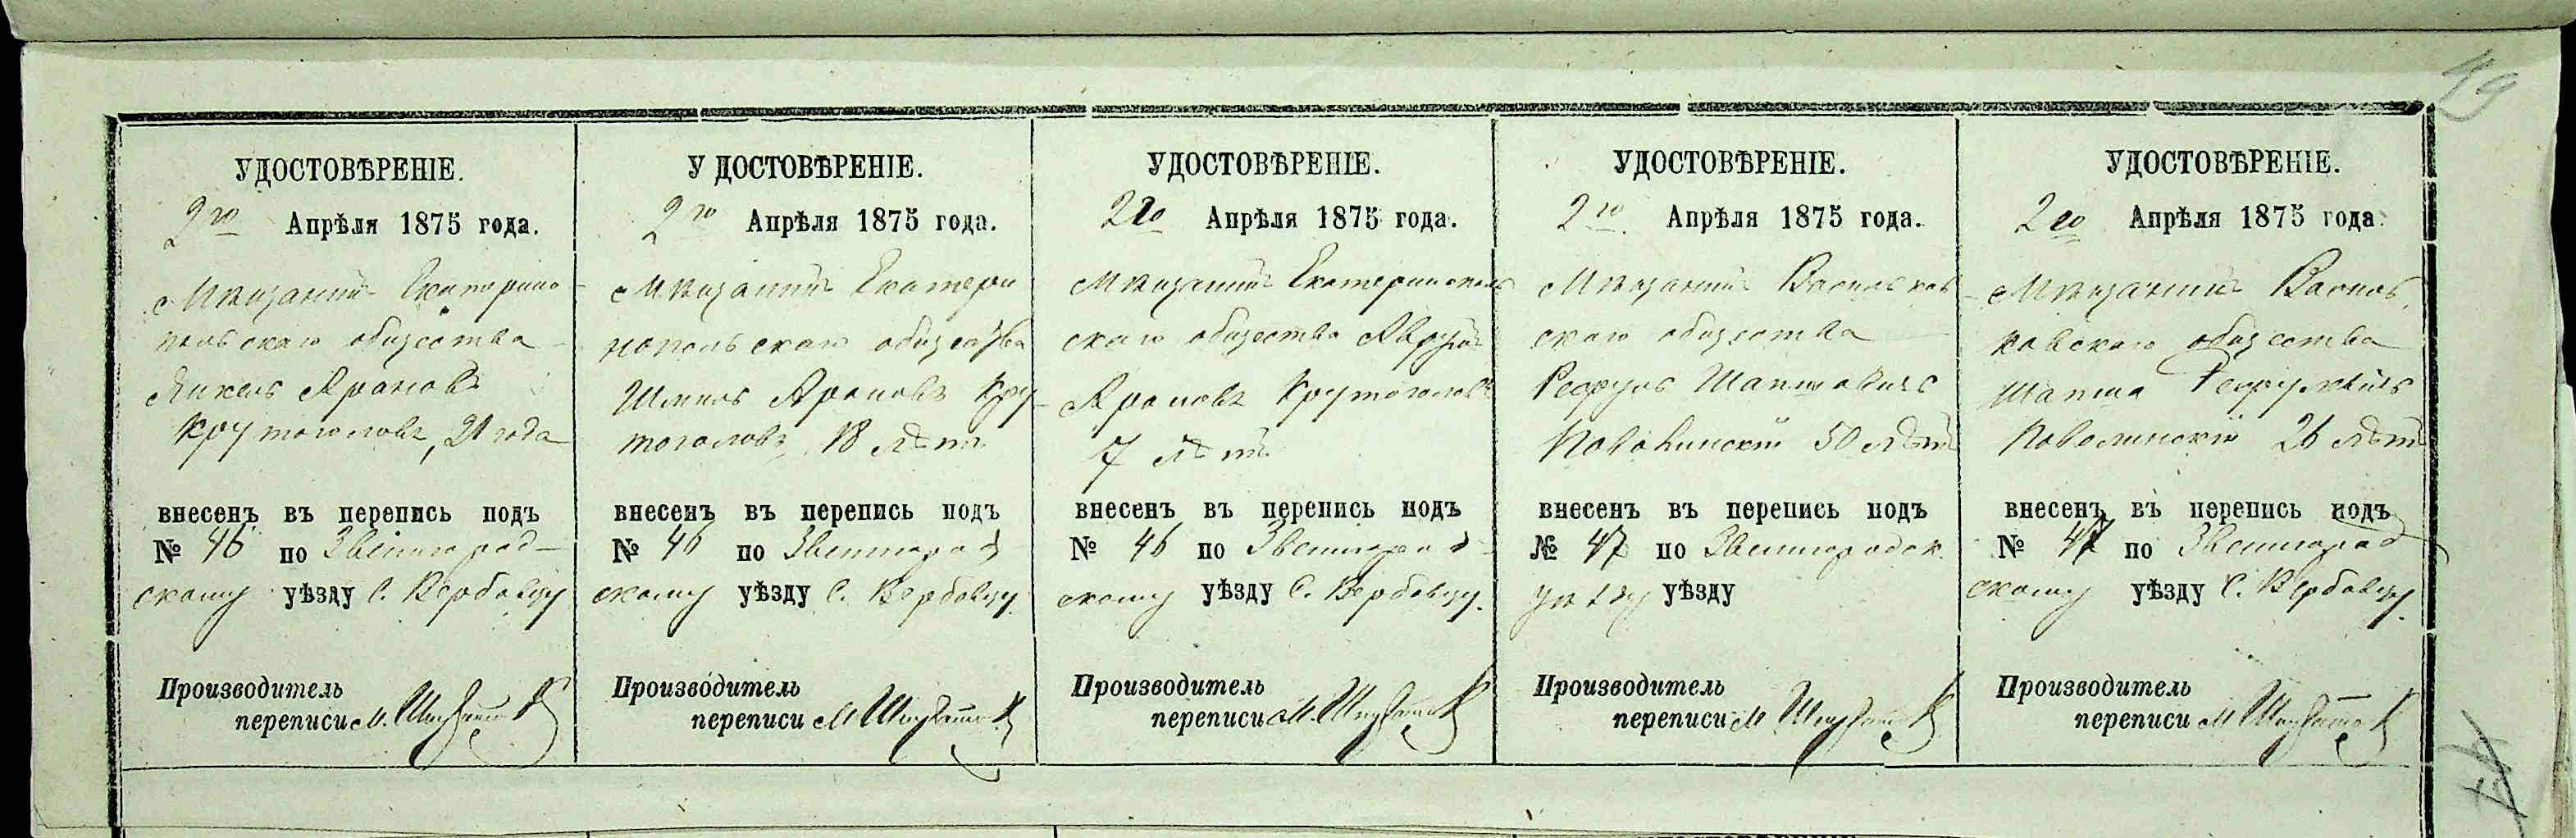 19
УДОСТОВѢРЕНІЕ.
2го Апрѣля 1875 года.
Мѣщанинъ Екатерино-
польскаго общества
Янкель Ароновъ
Крутоголовъ, 21 года
внесенъ въ перепись подъ
№ 46 по Звенигород-
скому уѣзду С. Вербовцу
Производитель
переписи М.
У ДОСТОВѢРЕНІЕ.
2го Апрѣля 1875 года.
Мѣщанинъ Екатери
нопольскаго общества
Шмиль Ароновъ Кру-
тоголовъ, 18 лѣтъ
внесенъ въ перепись подъ
№ 46 по Звенигород
скому уѣзду С. Вербовцу.
Производитель
переписи М
УДОСТОВѢРЕНІЕ.
2го Апрѣля 1875 года.
Мѣщанинъ Екатеринополь
скаго общества
Ароновъ Крутоголовъ
7 лѣтъ
внесенъ въ перепись подъ
№ 46 по Звенигород-
скому уѣзду С. Вербовцу.
Производитель
переписи М.
УДОСТОВѢРЕНІЕ.
2го Апрѣля 1875 года.
Мѣщанинъ Васильков-
скаго общества
Рефуль Шапшовичъ
50 лѣтъ
внесенъ въ перепись подъ
№ 47 по Звенигородск.
уѣзду уѣзду
Производитель
переписи М
УДОСТОВѢРЕНІЕ.
2го Апрѣля 1875 года.
Мѣщанинъ Василь
ковскаго общества
Шапша Рефулевичъ
26 лѣтъ
внесенъ въ перепись подъ
№ 47 по Звенигород
скому уѣзду С. Вербовцу.
Производитель
переписи М